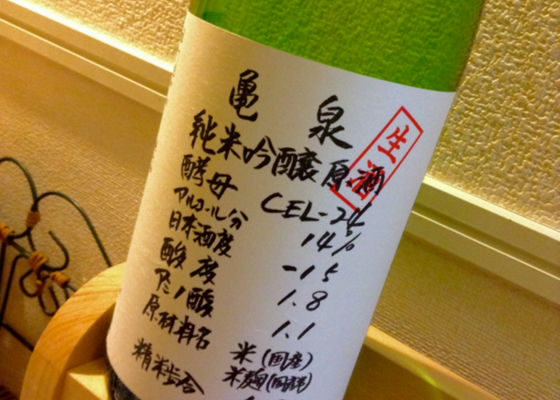 亀泉
生酒
純米吟醸原酒
酵母 CEL-24
アルコール分 14%
日本酒度 -15
酸度 1.8
アミノ酸 1.1
原材料名 米(国産)
米麹(国産米)
精米歩合